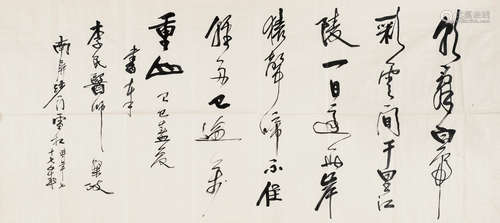 朝辭白帝
彩雲間千里江
陵一日還兩岸
猿聲啼不住
輕舟已過萬
重山
己巳孟夏
書奉
李民醫師
南屏